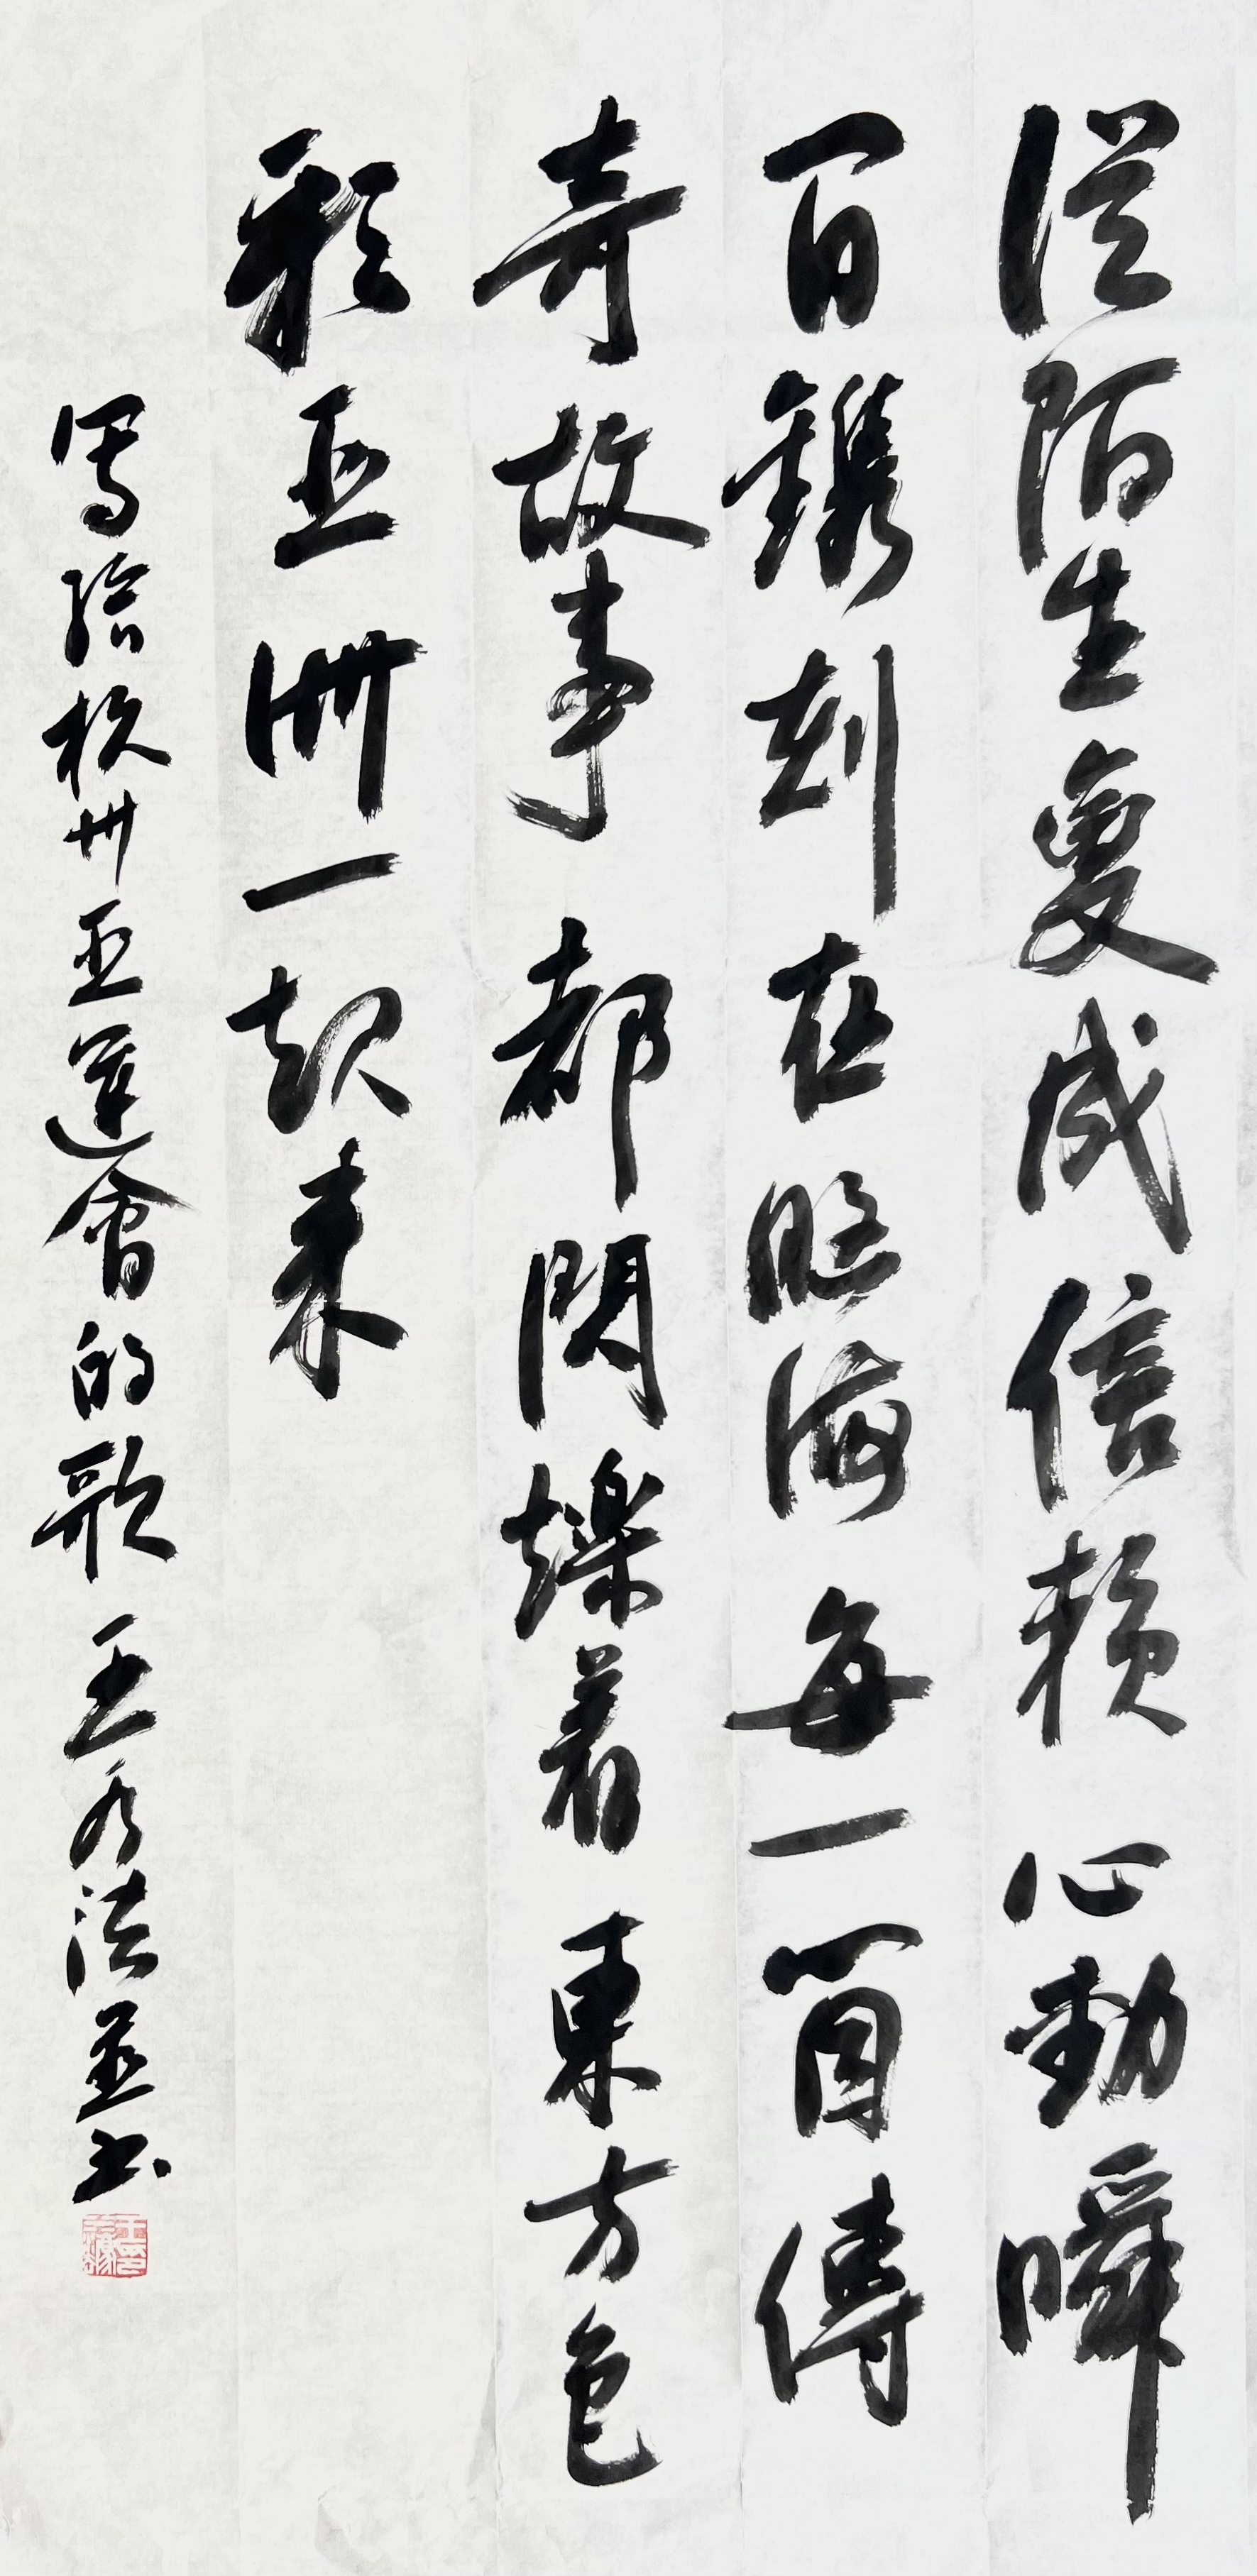 從陌生變成信賴心動瞬
間鐫刻在腦海每一首傳
奇故事都閃爍着東方色
彩亞洲一起來
寫給杭州亞運會的歌王乃法並书